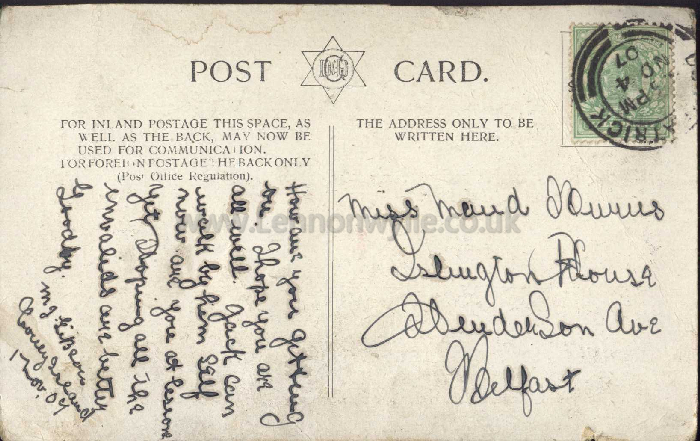 POST CARD.
FOR INLAND POSTAGE THIS SPACE, AS
WELL AS THE BACK, MAY NOW BE
USED FOR COMMUNICATION.
FOR FOREIGN POSTAGE THE BACK ONLY
(Post Office Regulation).
THE ADDRESS ONLY TO BE
WRITTEN HERE.
How are you getting
on I hope you are
all well. Jack can
walk by him self
now are you at lessons
yet Hoping all the
invalids are better
Goodby.
1 Nov. 07
Miss Maud
Islington House
Henderson Ave
Belfast
TRICK
5 PM
NO 4
07
www.Lennonwylie.co.uk